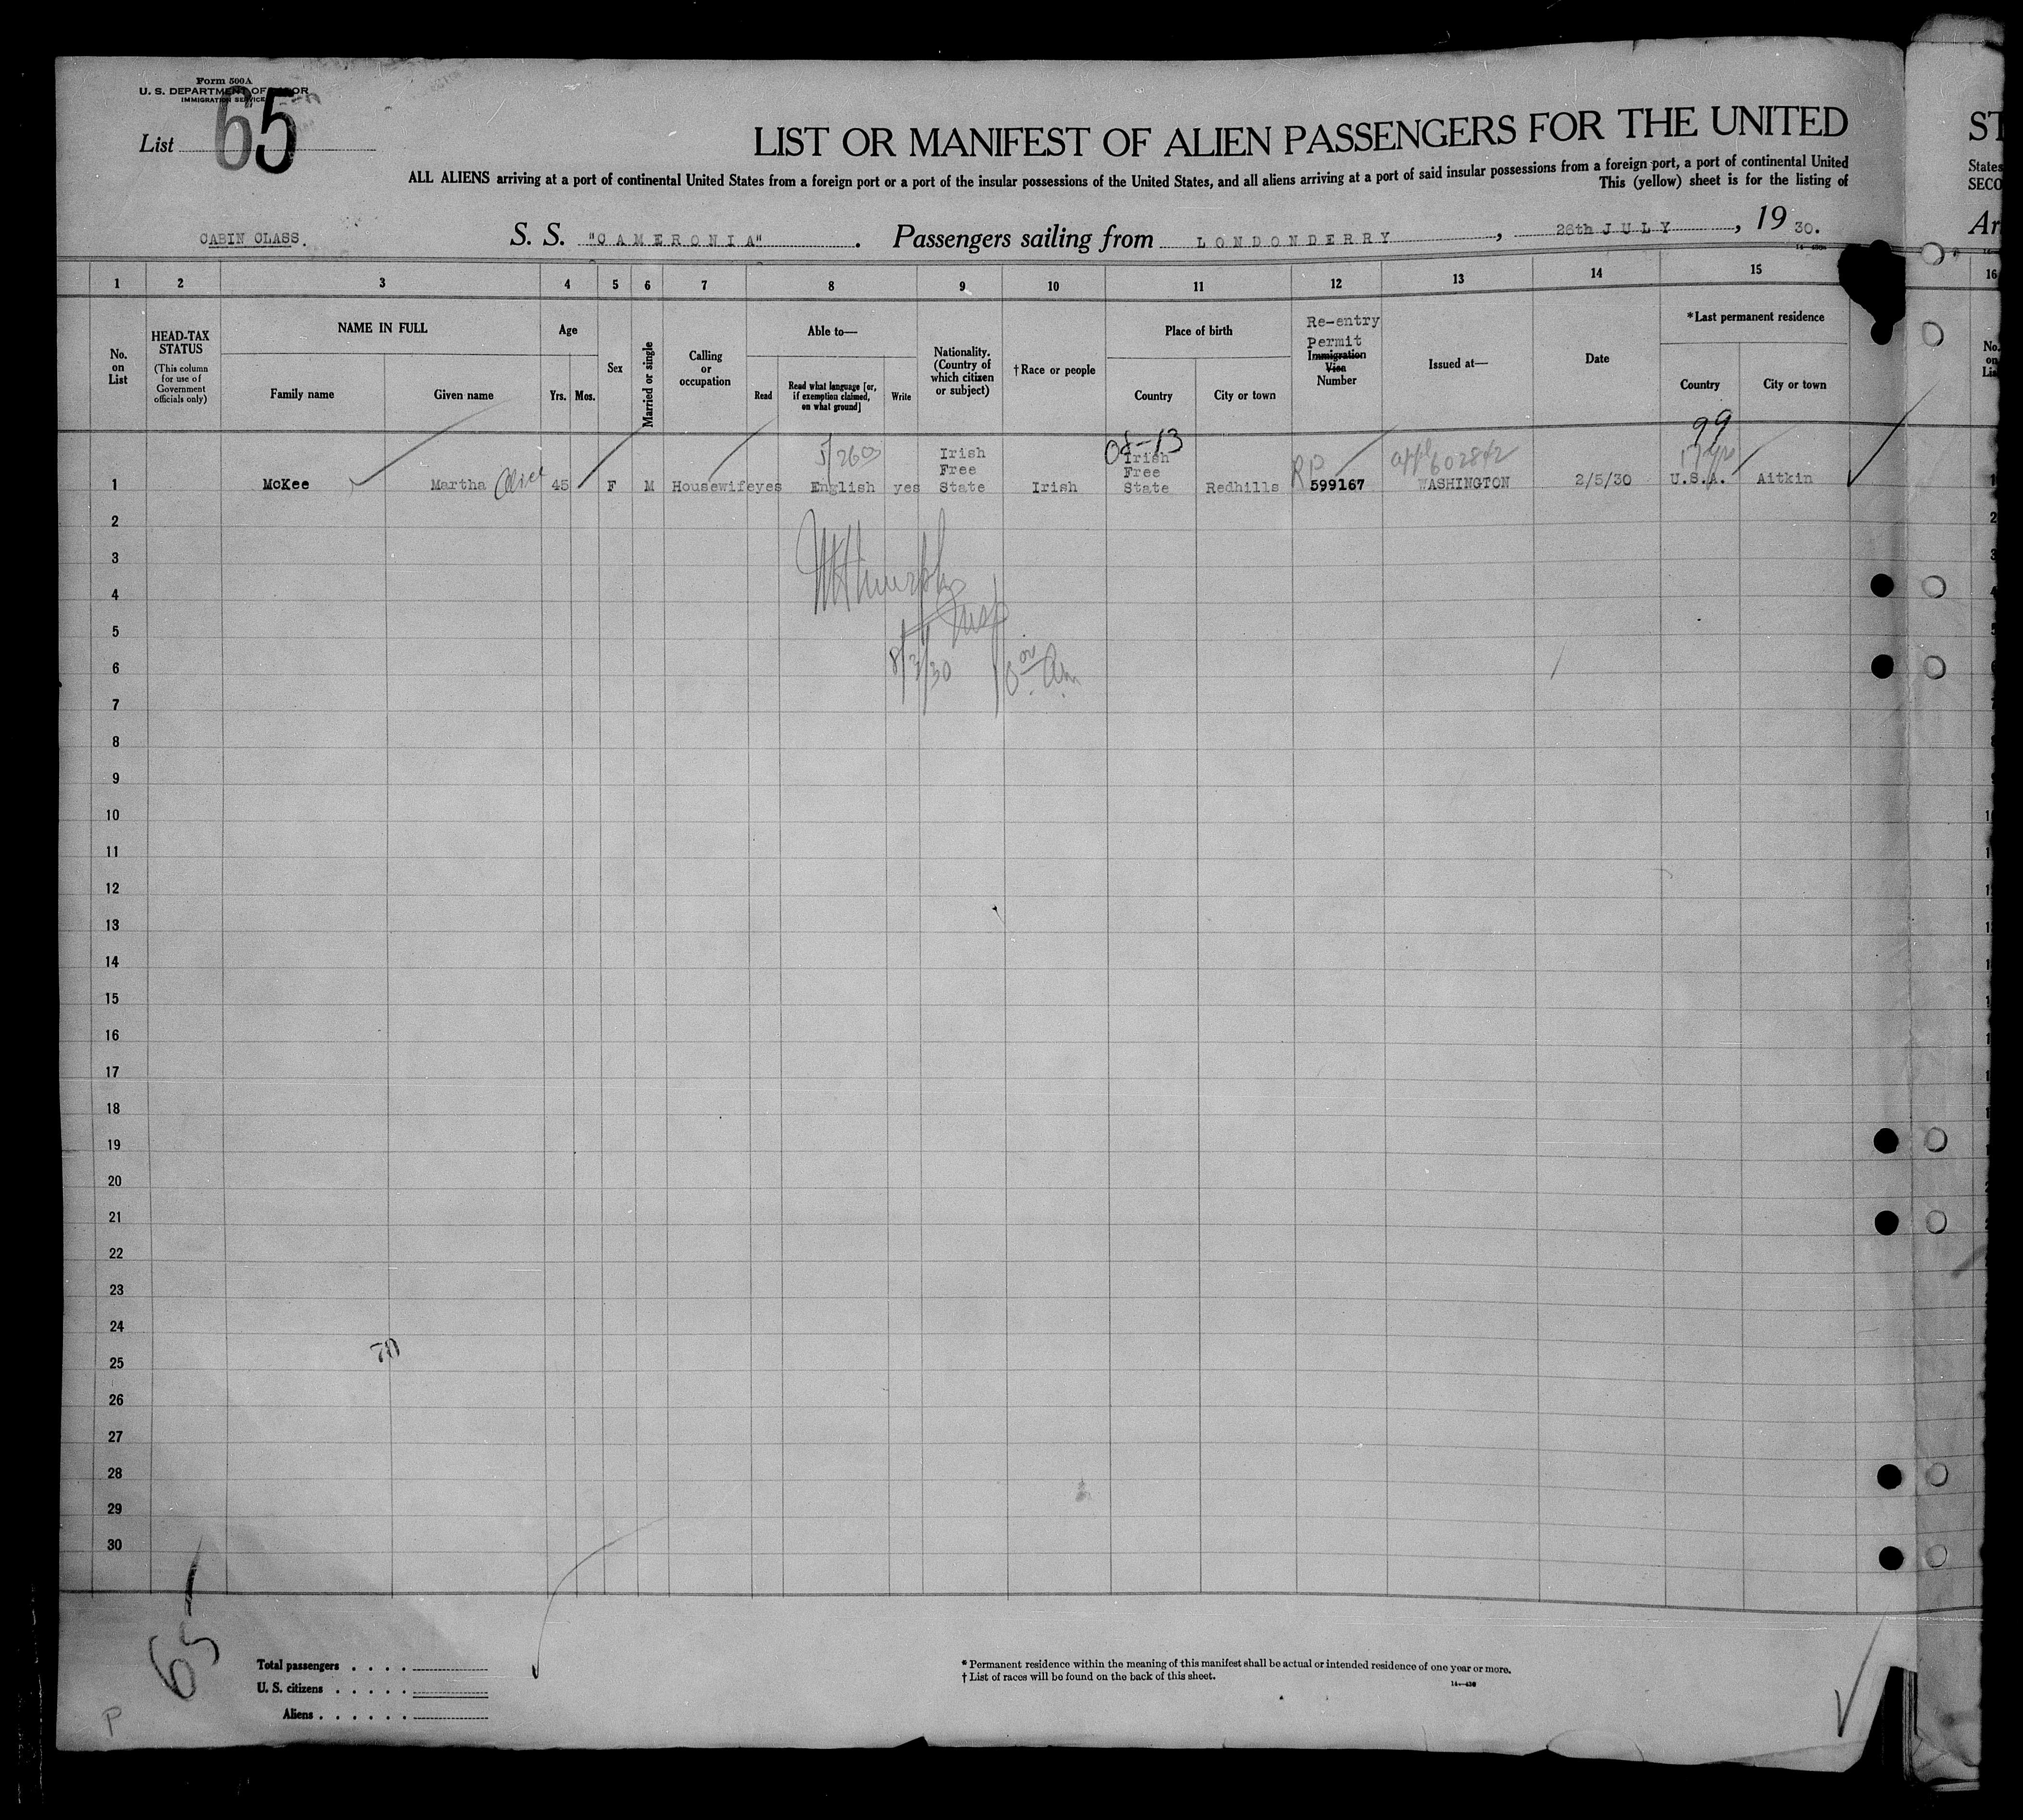 Form 500A
U. S. DEPARTMENT OF LABOR
IMMIGRATION SERVICE
List 65
LIST OR MANIFEST OF ALIEN PASSENGERS FOR THE UNITED
ST
ALL ALIENS arriving at a port of continental United States from a foreign port or a port of the insular possessions of the United States, and all aliens arriving at a port of said insular possessions from a foreign port, a port of continental United
States
This (yellow) sheet is for the listing of
SECO
CABIN CLASS.
S. S. "CAMERONIA". Passengers sailing from LONDONDERRY, 26th JULY, 1930.
Ar
1 2 3 4 5 6 7 8 9 10 11 12 13 14 15 16
No. on List
HEAD-TAX STATUS
(This column for use of Government officials only)
NAME IN FULL
Family name
Given name
Age
Yrs. Mos.
Sex
Married or single
Calling or occupation
Able to—
Read
Read what language [or, if exemption claimed, on what ground]
Write
Nationality. (Country of which citizen or subject)
†Race or people
Place of birth
Country
City or town
Re-entry Permit
Immigration Visa Number
Issued at—
Date
*Last permanent residence
Country
City or town
No. on Lis
99
5/260
08-13
RP
appl 602842
1 McKee Martha Alice 45 F M Housewife yes English yes Irish Free State Irish Irish Free State Redhills 599167 WASHINGTON 2/5/30 U.S.A. Aitkin
2
3
4
5
6
7
8
9
10
11
12
13
14
15
16
17
18
19
20
21
22
23
24
25
26
27
28
29
30
Murphy
Insp
8/3/30 10 00 am
70
65
P
Total passengers . . . .
U. S. citizens . . . . .
Aliens . . . . . .
* Permanent residence within the meaning of this manifest shall be actual or intended residence of one year or more.
† List of races will be found on the back of this sheet.